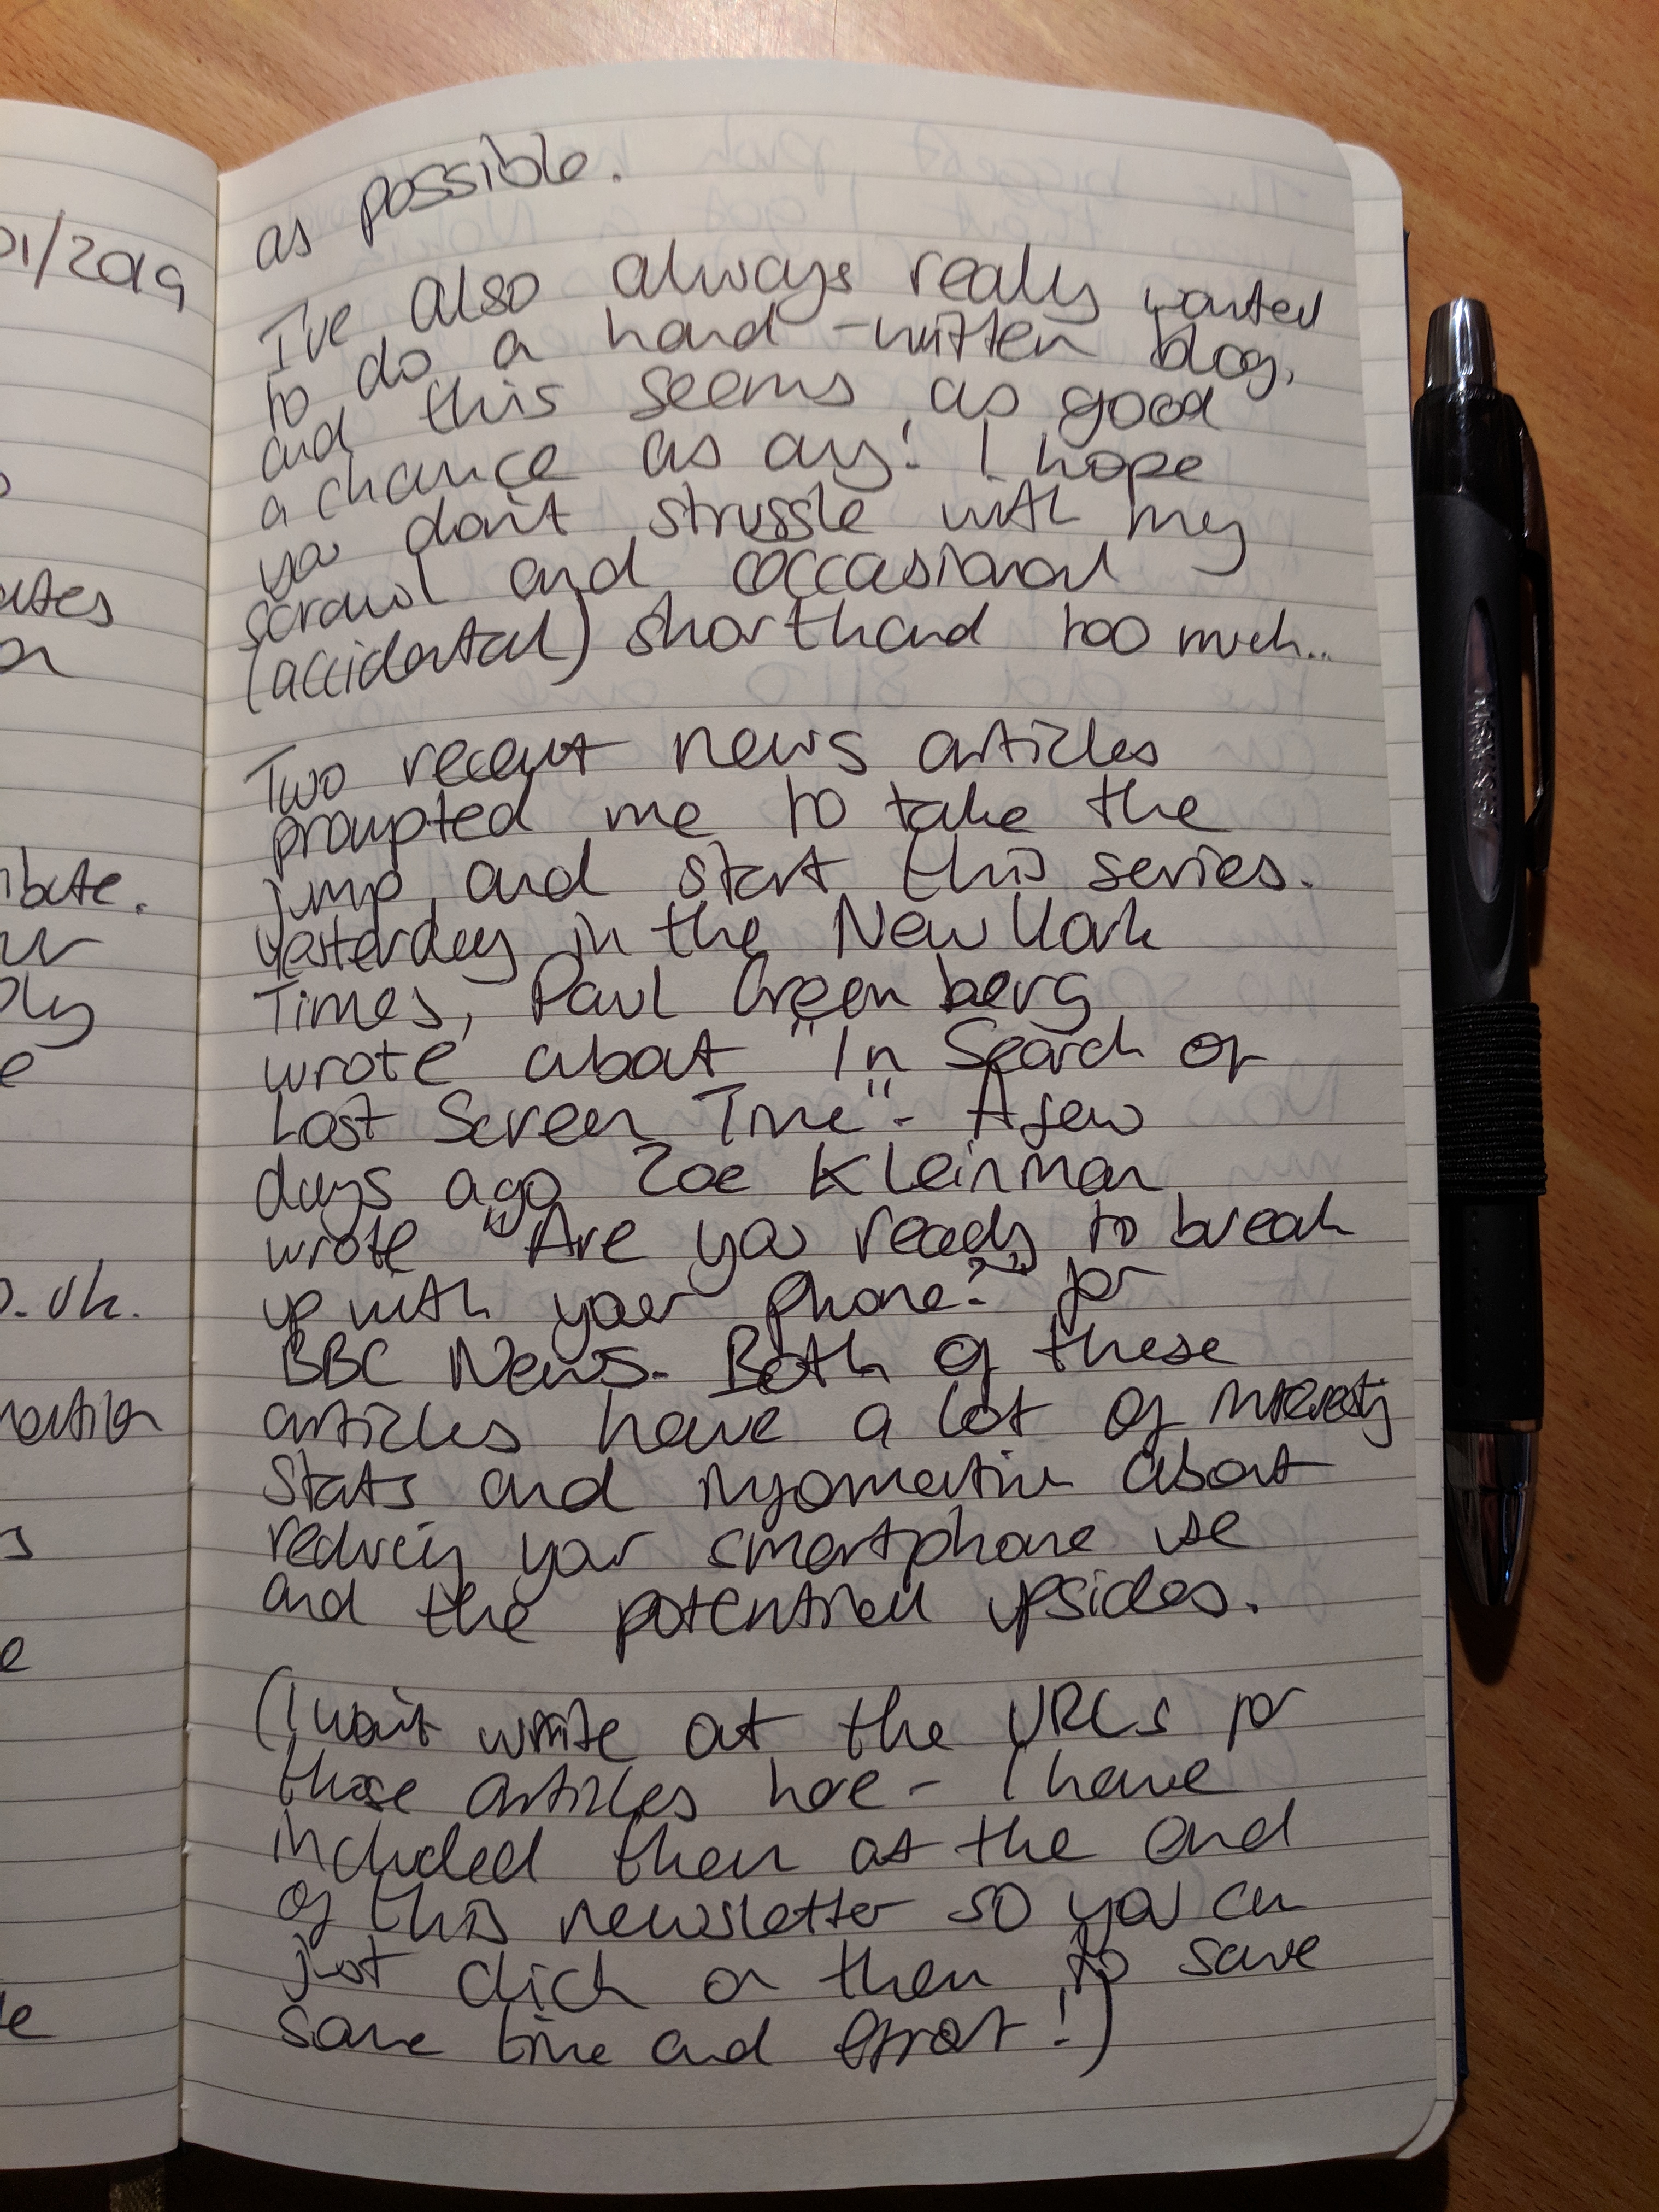 01/2019
as possible.
I've also always really wanted
to do a hand-written blog,
and this seems as good
a chance as any! I hope
you don't struggle with my
scrawl and occasional
(accidental) shorthand too much..
Two recent news articles
prompted me to take the
jump, and start this series.
Yesterday in the New York
Times, Paul Greenberg
wrote about "In Search of
Lost Screen Time". A few
days ago Zoe Kleinman
wrote "Are you ready to break
up with your phone?" for
BBC News. Both of these
articles have a lot of interesting
stats and information about
reducing your smartphone use
and the potential upsides.
(I won't write out the URLs for
those articles here - I have
included them at the end
of this newsletter so you can
just click on them to save
some time and effort!)